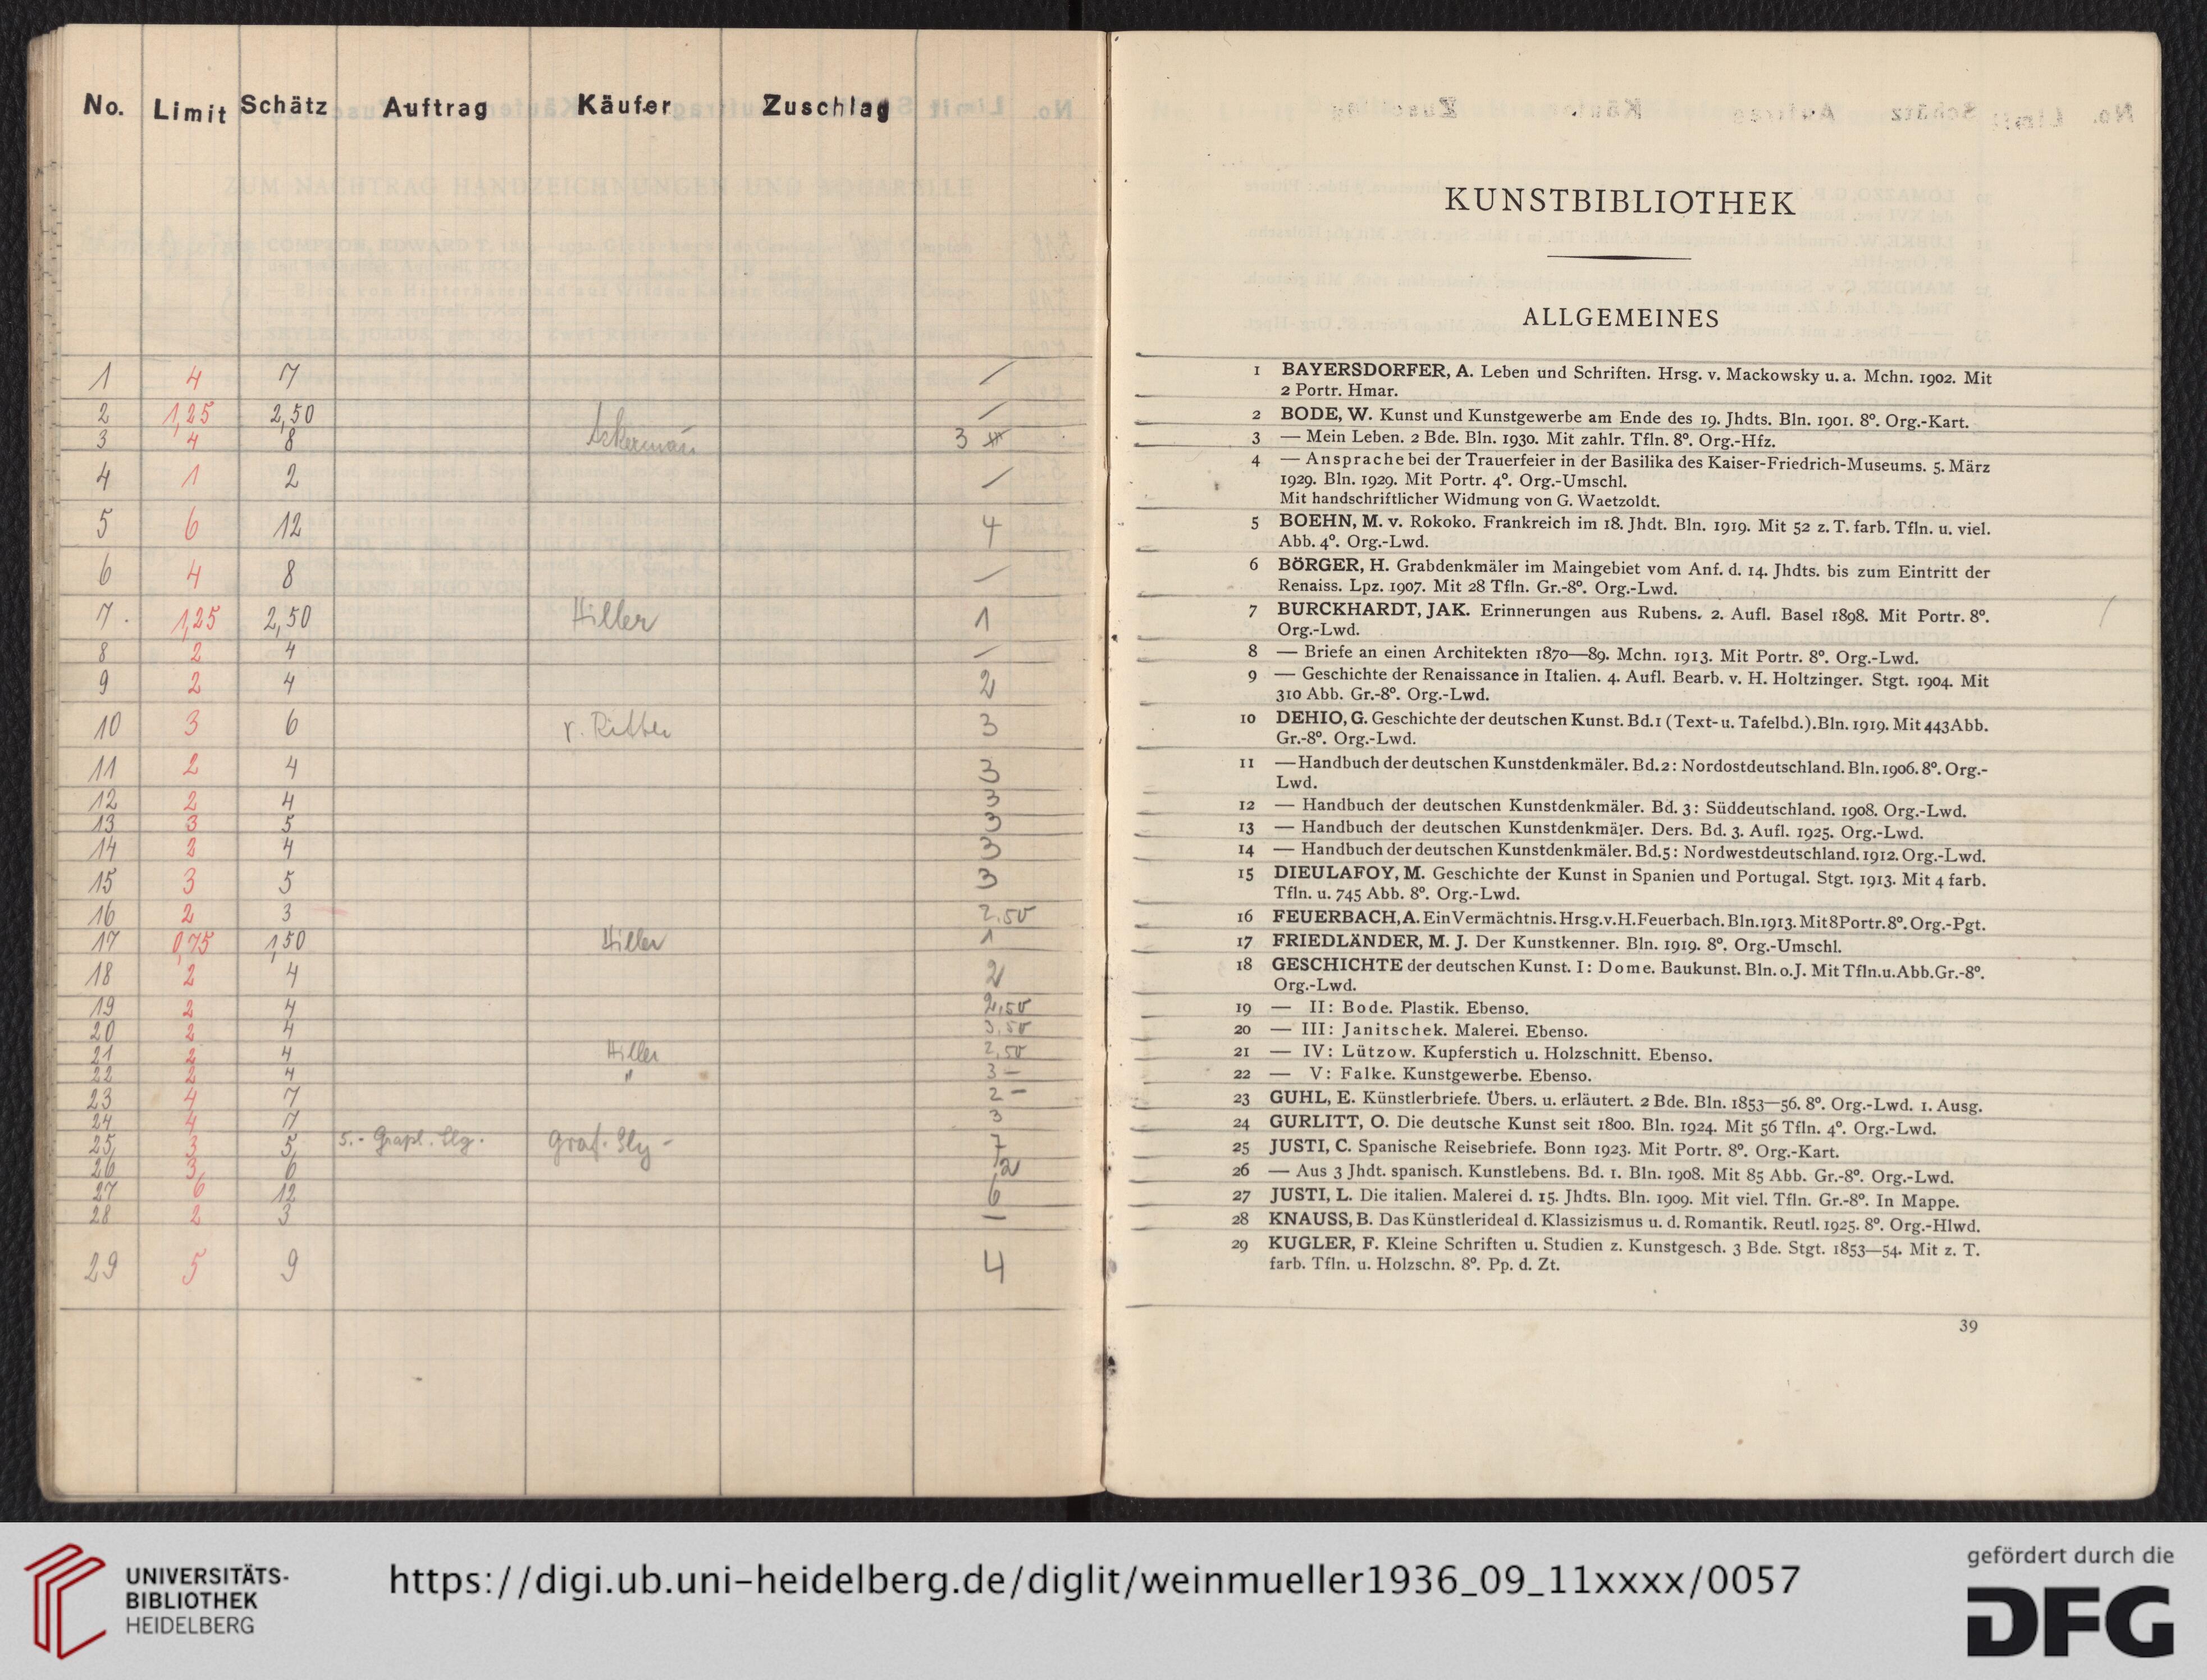 No. Limit Schätz Auftrag Käufer Zuschlag
1 4 7 /
2 1,25 2,50 /
3 4 8 3
4 1 2 /
5 6 12 4
6 4 8 /
7. 1,25 2,50 Hiller 1
8 2 4 /
9 2 4 2
10 3 6 v. Ritter 3
11 2 4 3
12 2 4 3
13 3 5 3
14 2 4 3
15 3 5 3
16 2 3 2,50
17 0,75 1,50 Hiller 1
18 2 4 2
19 2 4 2,50
20 2 4 3,50
21 2 4 Hiller 2,50
22 2 4 " 3 –
23 4 7 2 –
24 4 7 3
25 3 5 5.- Graf. 7
26 3 6 2
27 6 12 6
28 2 3 –
29 5 9 4
KUNSTBIBLIOTHEK
ALLGEMEINES
1 BAYERSDORFER, A. Leben und Schriften. Hrsg. v. Mackowsky u. a. Mchn. 1902. Mit
2 Portr. Hmar.
2 BODE, W. Kunst und Kunstgewerbe am Ende des 19. Jhdts. Bln. 1901. 8⁰. Org.-Kart.
3 — Mein Leben. 2 Bde. Bln. 1930. Mit zahlr. Tfln. 8⁰. Org.-Hfz.
4 — Ansprache bei der Trauerfeier in der Basilika des Kaiser-Friedrich-Museums. 5. März
1929. Bln. 1929. Mit Portr. 4⁰. Org.-Umschl.
Mit handschriftlicher Widmung von G. Waetzoldt.
5 BOEHN, M. v. Rokoko. Frankreich im 18. Jhdt. Bln. 1919. Mit 52 z. T. farb. Tfln. u. viel.
Abb. 4⁰. Org.-Lwd.
6 BÖRGER, H. Grabdenkmäler im Maingebiet vom Anf. d. 14. Jhdts. bis zum Eintritt der
Renaiss. Lpz. 1907. Mit 28 Tfln. Gr.-8⁰. Org.-Lwd.
7 BURCKHARDT, JAK. Erinnerungen aus Rubens. 2. Aufl. Basel 1898. Mit Portr. 8⁰.
Org.-Lwd.
8 — Briefe an einen Architekten 1870—89. Mchn. 1913. Mit Portr. 8⁰. Org.-Lwd.
9 — Geschichte der Renaissance in Italien. 4. Aufl. Bearb. v. H. Holtzinger. Stgt. 1904. Mit
310 Abb. Gr.-8⁰. Org.-Lwd.
10 DEHIO, G. Geschichte der deutschen Kunst. Bd. 1 (Text- u. Tafelbd.). Bln. 1919. Mit 443 Abb.
Gr.-8⁰. Org.-Lwd.
11 — Handbuch der deutschen Kunstdenkmäler. Bd. 2: Nordostdeutschland. Bln. 1906. 8⁰. Org.-
Lwd.
12 — Handbuch der deutschen Kunstdenkmäler. Bd. 3: Süddeutschland. 1908. Org.-Lwd.
13 — Handbuch der deutschen Kunstdenkmäler. Ders. Bd. 3. Aufl. 1925. Org.-Lwd.
14 — Handbuch der deutschen Kunstdenkmäler. Bd. 5: Nordwestdeutschland. 1912. Org.-Lwd.
15 DIEULAFOY, M. Geschichte der Kunst in Spanien und Portugal. Stgt. 1913. Mit 4 farb.
Tfln. u. 745 Abb. 8⁰. Org.-Lwd.
16 FEUERBACH, A. Ein Vermächtnis. Hrsg. v. H. Feuerbach. Bln. 1913. Mit 8 Portr. 8⁰. Org.-Pgt.
17 FRIEDLÄNDER, M. J. Der Kunstkenner. Bln. 1919. 8⁰. Org.-Umschl.
18 GESCHICHTE der deutschen Kunst. I: Dome. Baukunst. Bln. o. J. Mit Tfln. u. Abb. Gr.-8⁰.
Org.-Lwd.
19 — II: Bode. Plastik. Ebenso.
20 — III: Janitschek. Malerei. Ebenso.
21 — IV: Lützow. Kupferstich u. Holzschnitt. Ebenso.
22 — V: Falke. Kunstgewerbe. Ebenso.
23 GUHL, E. Künstlerbriefe. Übers. u. erläutert. 2 Bde. Bln. 1853—56. 8⁰. Org.-Lwd. 1. Ausg.
24 GURLITT, O. Die deutsche Kunst seit 1800. Bln. 1924. Mit 56 Tfln. 4⁰. Org.-Lwd.
25 JUSTI, C. Spanische Reisebriefe. Bonn 1923. Mit Portr. 8⁰. Org.-Kart.
26 — Aus 3 Jhdt. spanisch. Kunstlebens. Bd. 1. Bln. 1908. Mit 85 Abb. Gr.-8⁰. Org.-Lwd.
27 JUSTI, L. Die italien. Malerei d. 15. Jhdts. Bln. 1909. Mit viel. Tfln. Gr.-8⁰. In Mappe.
28 KNAUSS, B. Das Künstlerideal d. Klassizismus u. d. Romantik. Reutl. 1925. 8⁰. Org.-Hlwd.
29 KUGLER, F. Kleine Schriften u. Studien z. Kunstgesch. 3 Bde. Stgt. 1853—54. Mit z. T.
farb. Tfln. u. Holzschn. 8⁰. Pp. d. Zt.
39
UNIVERSITÄTS-
BIBLIOTHEK
HEIDELBERG
https://digi.ub.uni-heidelberg.de/diglit/weinmueller1936_09_11xxxx/0057
gefördert durch die
DFG